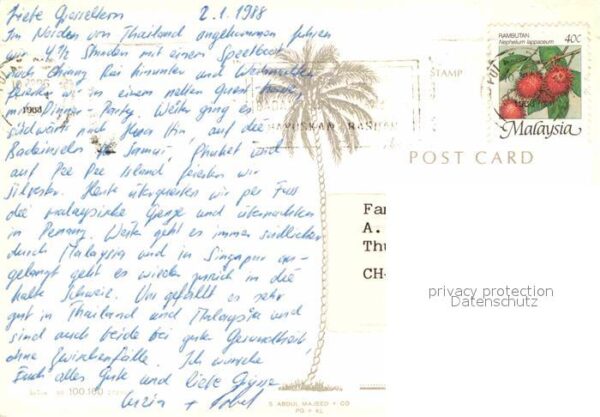 Liebe Gisseltern 2.1.1988
Im Norden von Thailand angekommen fuhren
wir 4½ Stunden mit einem Speetboot
nach Chiang Rai hinunter und Weihnachten
feierten wir in einem netten Guest-House
mit Dinner-Party. Weiter ging es
südwärts nach Hua Hin, auf die
Badeinseln Ko Samui, Phuket und
auf Pee Pee Island feierten wir
Silvester. Heute überquerten wir per Fuss
die malaysische Grenze und übernachten
in Penang. Weiter geht es immer südlicher
durch Malaysia und in Singapur an-
gelangt geht es wieder zurück in die
kalte Schweiz. Uns gefällt es sehr
gut in Thailand und Malaysia und
sind auch beide bei guter Gesundheit,
ohne Zwischenfälle. Ich wünsche
Euch alles Gute und liebe Grüsse
+
RAMBUTAN
Nephelium lappaceum
40c
Malaysia
STAMP
1988
POST CARD
Fam
A.
Thu
CH-
privacy protection
Datenschutz
100.100
S. ABDUL MAJEED & CO
PG • KL